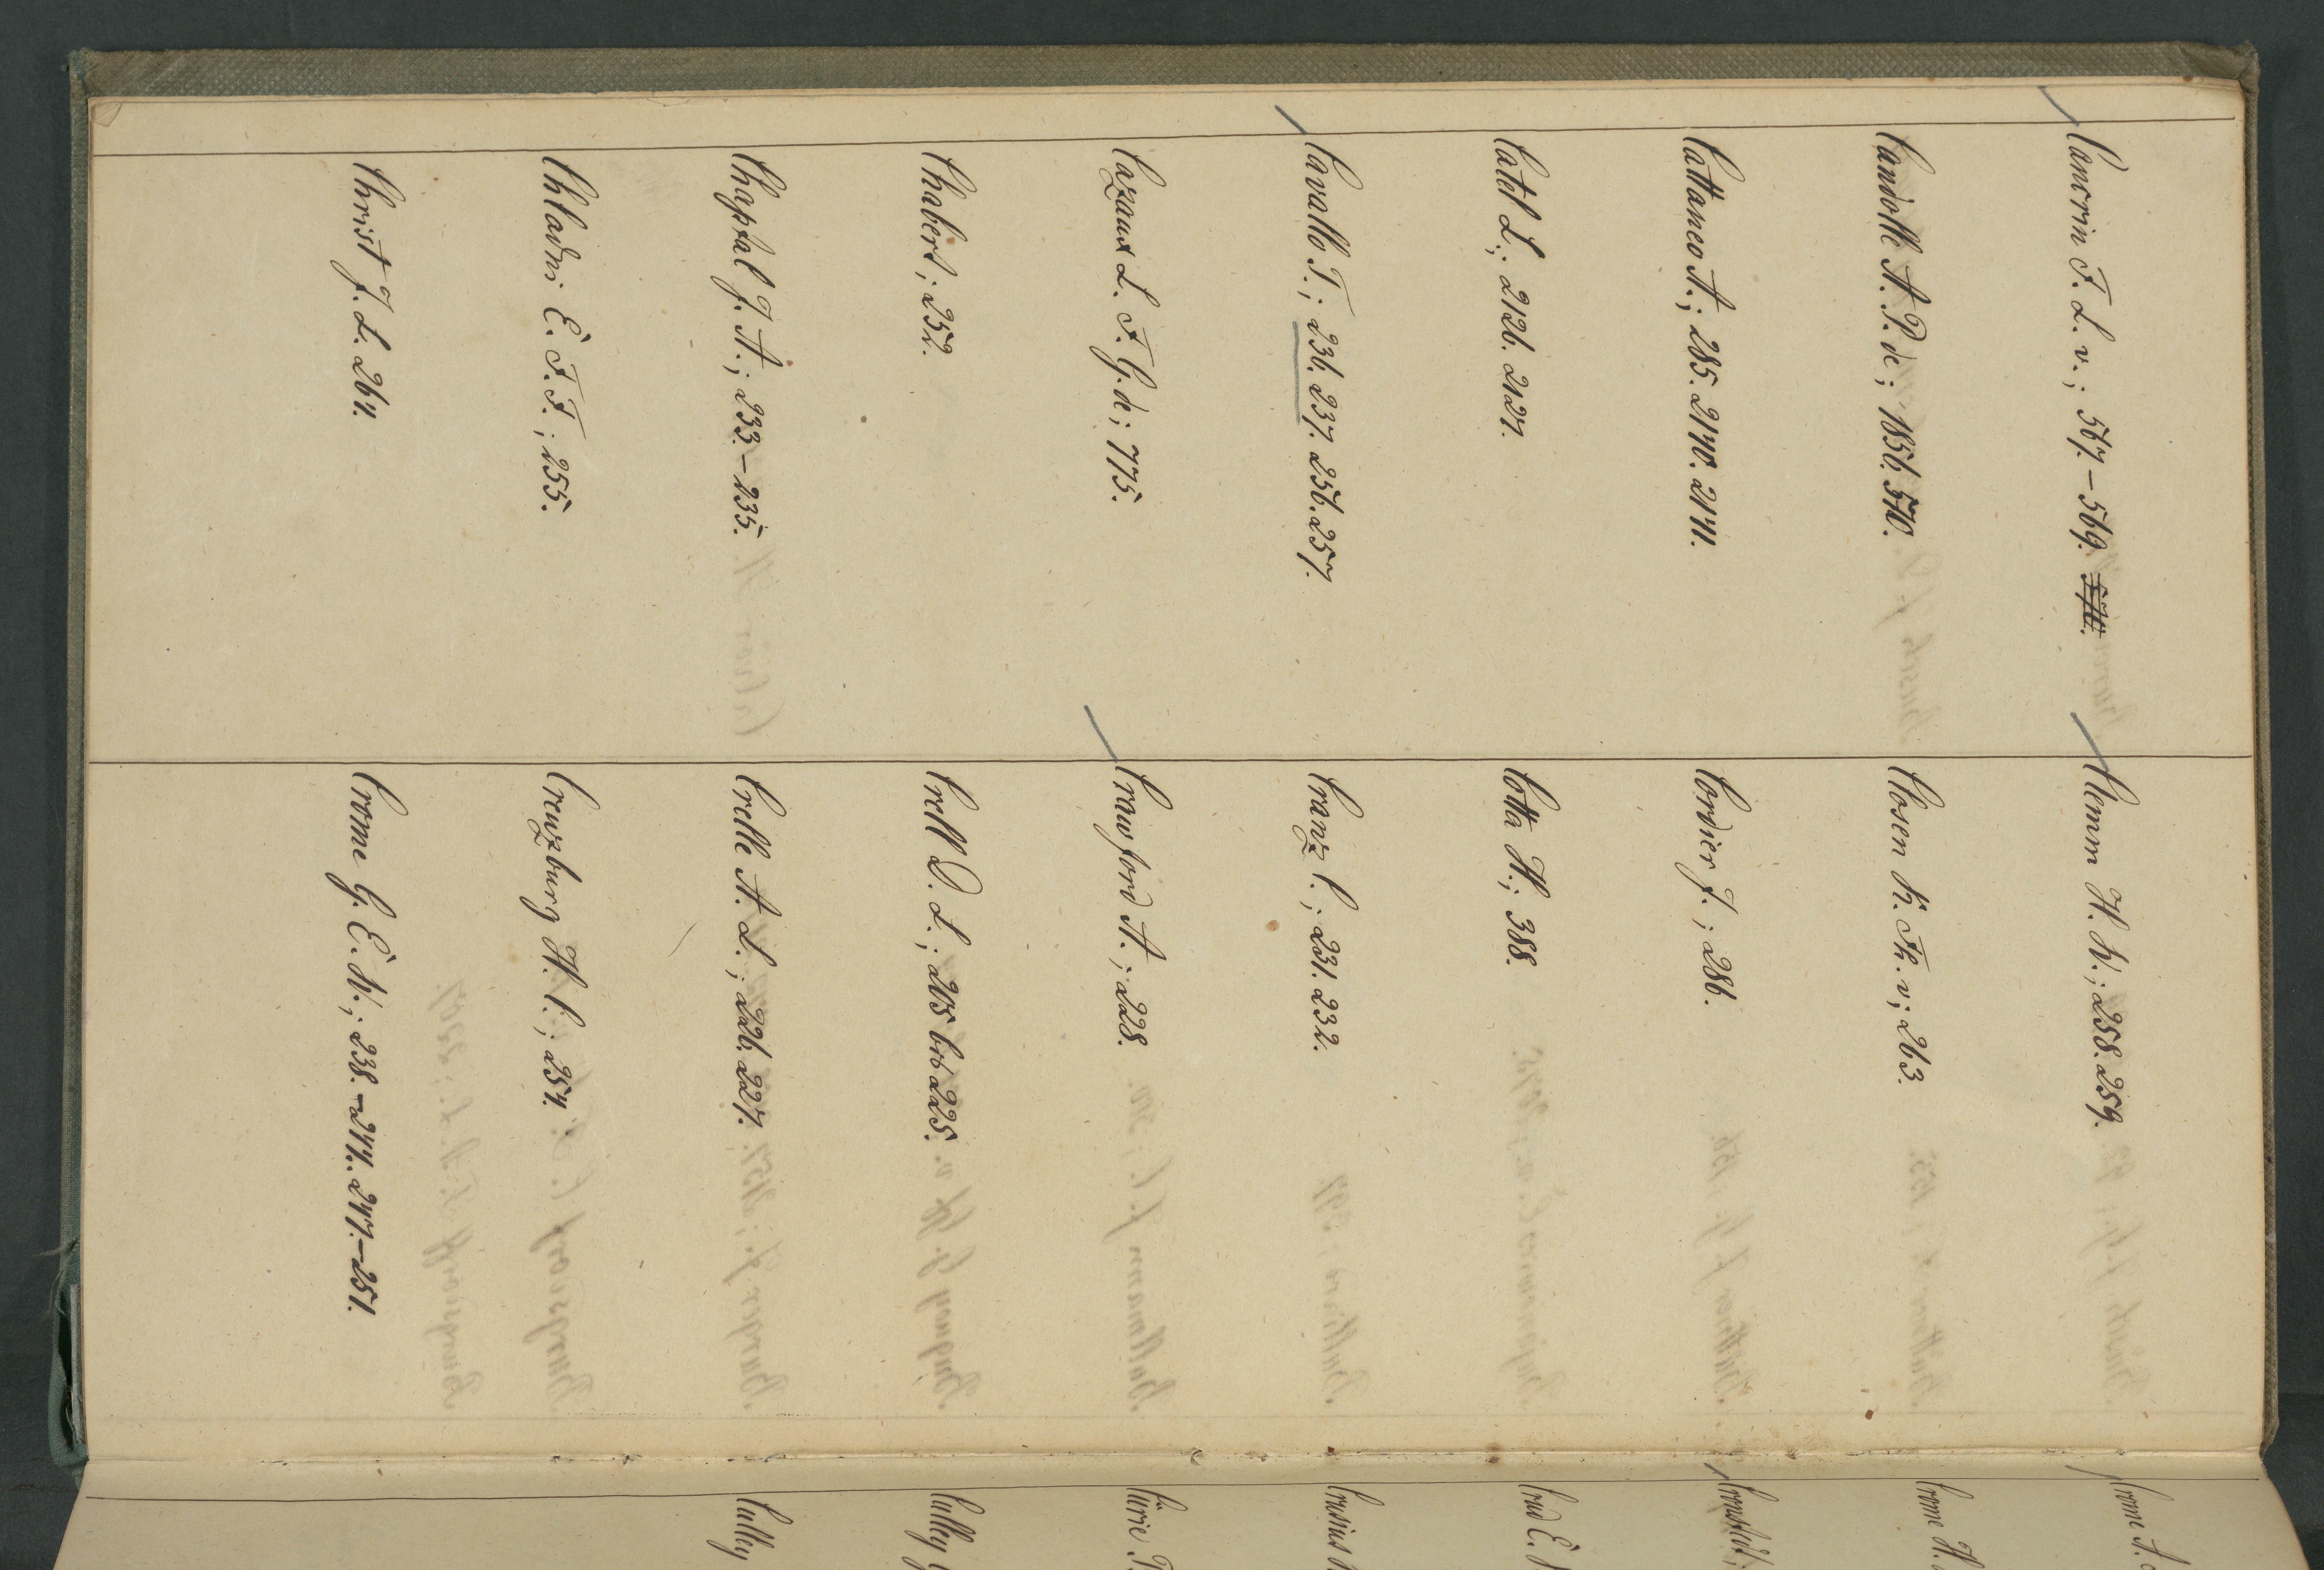 Cancrin F. L. v.; 567.-569.
Candolle A. P. de; 1856. 570.
Cattaneo A.; 285. 2140. 2141.
Catel L.; 2126. 2127.
Cavallo T.; 236. 237. 256. 257.
Cazaux L. F. G. de; 775.
Chabert; 252.
Chaptal J. A.; 233.-235.
Chladni E. F. F.; 255.
Christ J. L. 264.
Clemm H. W.; 258. 259.
Closen K. Fr. v; 263.
Cordier J.; 286.
Cotta H.; 388.
Cranz C.; 231. 232.
Crawford A.; 228.
Crell D. L.; 205 bis 225.
Crelle A. L.; 226. 227.
Creuzburg H. C.; 254.
Crome G. E. W.; 238.-244. 247.-251.
Crome A.
Crome H.
Crusius
Curie T.
Culley
Culley